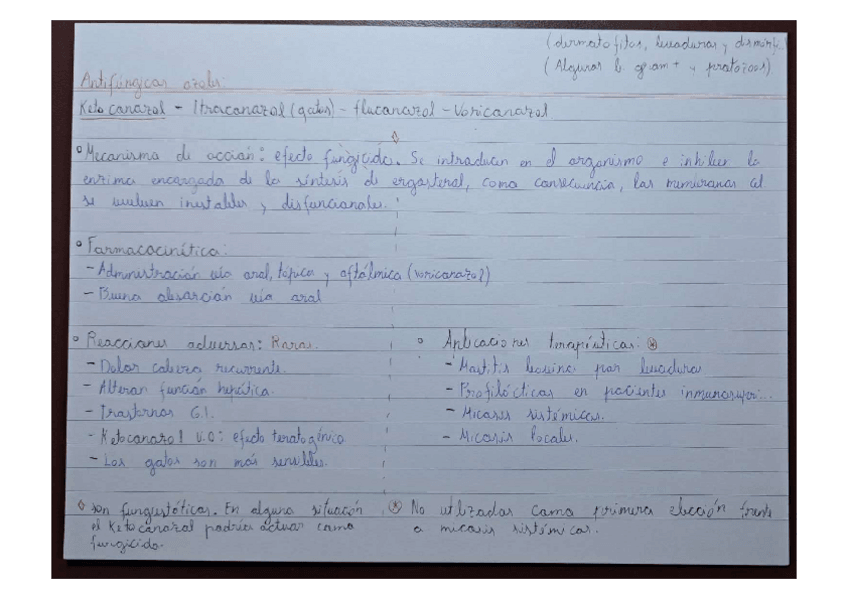 (dermatofitos, levaduras y dismórfi
(Algunas b. gram + y protozoos)
Antifúngicos azoles:
Ketoconazol - Itraconazol (gatos) - fluconazol - Voriconazol
° Mecanismo de acción: efecto fungicida. Se introducen en el organismo e inhiben la
enzima encargada de la síntesis de ergosterol, como consecuencia, las membranas cel
se vuelven inestables y disfuncionales.
° Farmacocinética:
- Administración vía oral, tópica y oftálmica (voriconazol)
- Buena absorción vía oral
° Reacciones adversas: Raras.
- Dolor cabeza recurrente.
- Alteran función hepática.
- Trastornos G.I.
- Ketoconazol V.O: efecto teratogénico
- Los gatos son más sensibles.
° Aplicaciones terapéuticas: *
- Mastitis bovina por levaduras
- Profilácticas en pacientes inmunosupr...
- Micosis sistémicas.
- Micosis locales.
◊ son fungistáticos. En alguna situación
el Ketoconazol podría actuar como
fungicida.
* No utilizadas como primera elección frente
a micosis sistémicas.